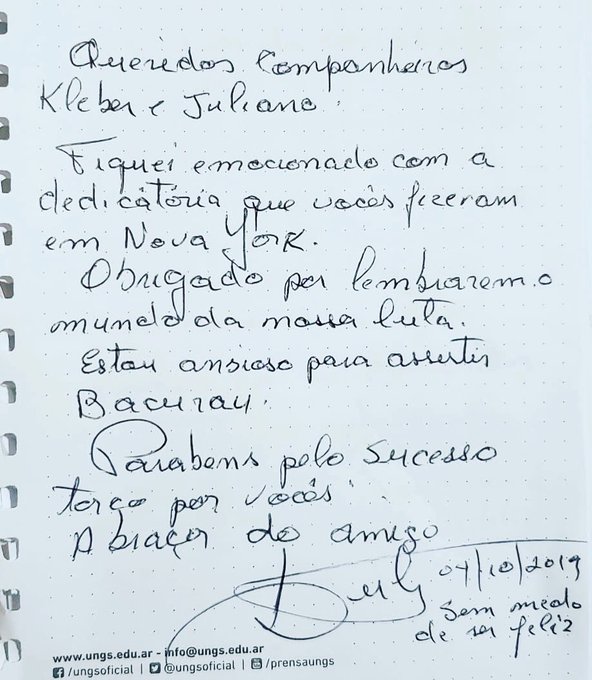 Queridos Companheiros
Kleber e Juliano.
Fiquei emocionado com a
dedicátória que vocês fizeram
em Nova York.
Obrigado por lembrarem o
mundo da nossa luta.
Estou ansioso para assistir
Bacurau.
Parabens pelo sucesso
torço por vocês!
Abraços do amigo
Lula 04/10/2019
Sem medo
de ser feliz
www.ungs.edu.ar - info@ungs.edu.ar
/ungsoficial | @ungsoficial | /prensaungs